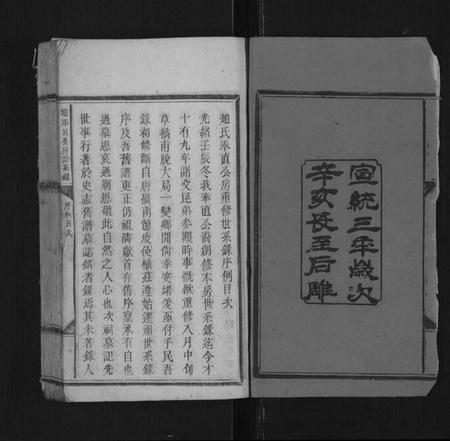 宣統三年歲次
辛亥長至后雕
趙氏奉直公房重修世系錄序例目次
光緒壬辰冬我奉直公裔創修本房世系錄迄今才
十有九年諸父昆弟參觀時事慨欲重修八月中旬
草稿甫脫大局一變鄉閭尚幸安堵爰亟付手民吾
錄初修斷自唐嶺南節度使植茲迻始遷祖世系錄
序及吾舊譜更正仍祖清獻首存舊序稟承有自也
過墓思哀過廟思敬此自然之人心也次祠墓記先
世事行著於史志舊譜墓誌銘者錄焉其未著錄人
趙奉直房世系錄
序例目次